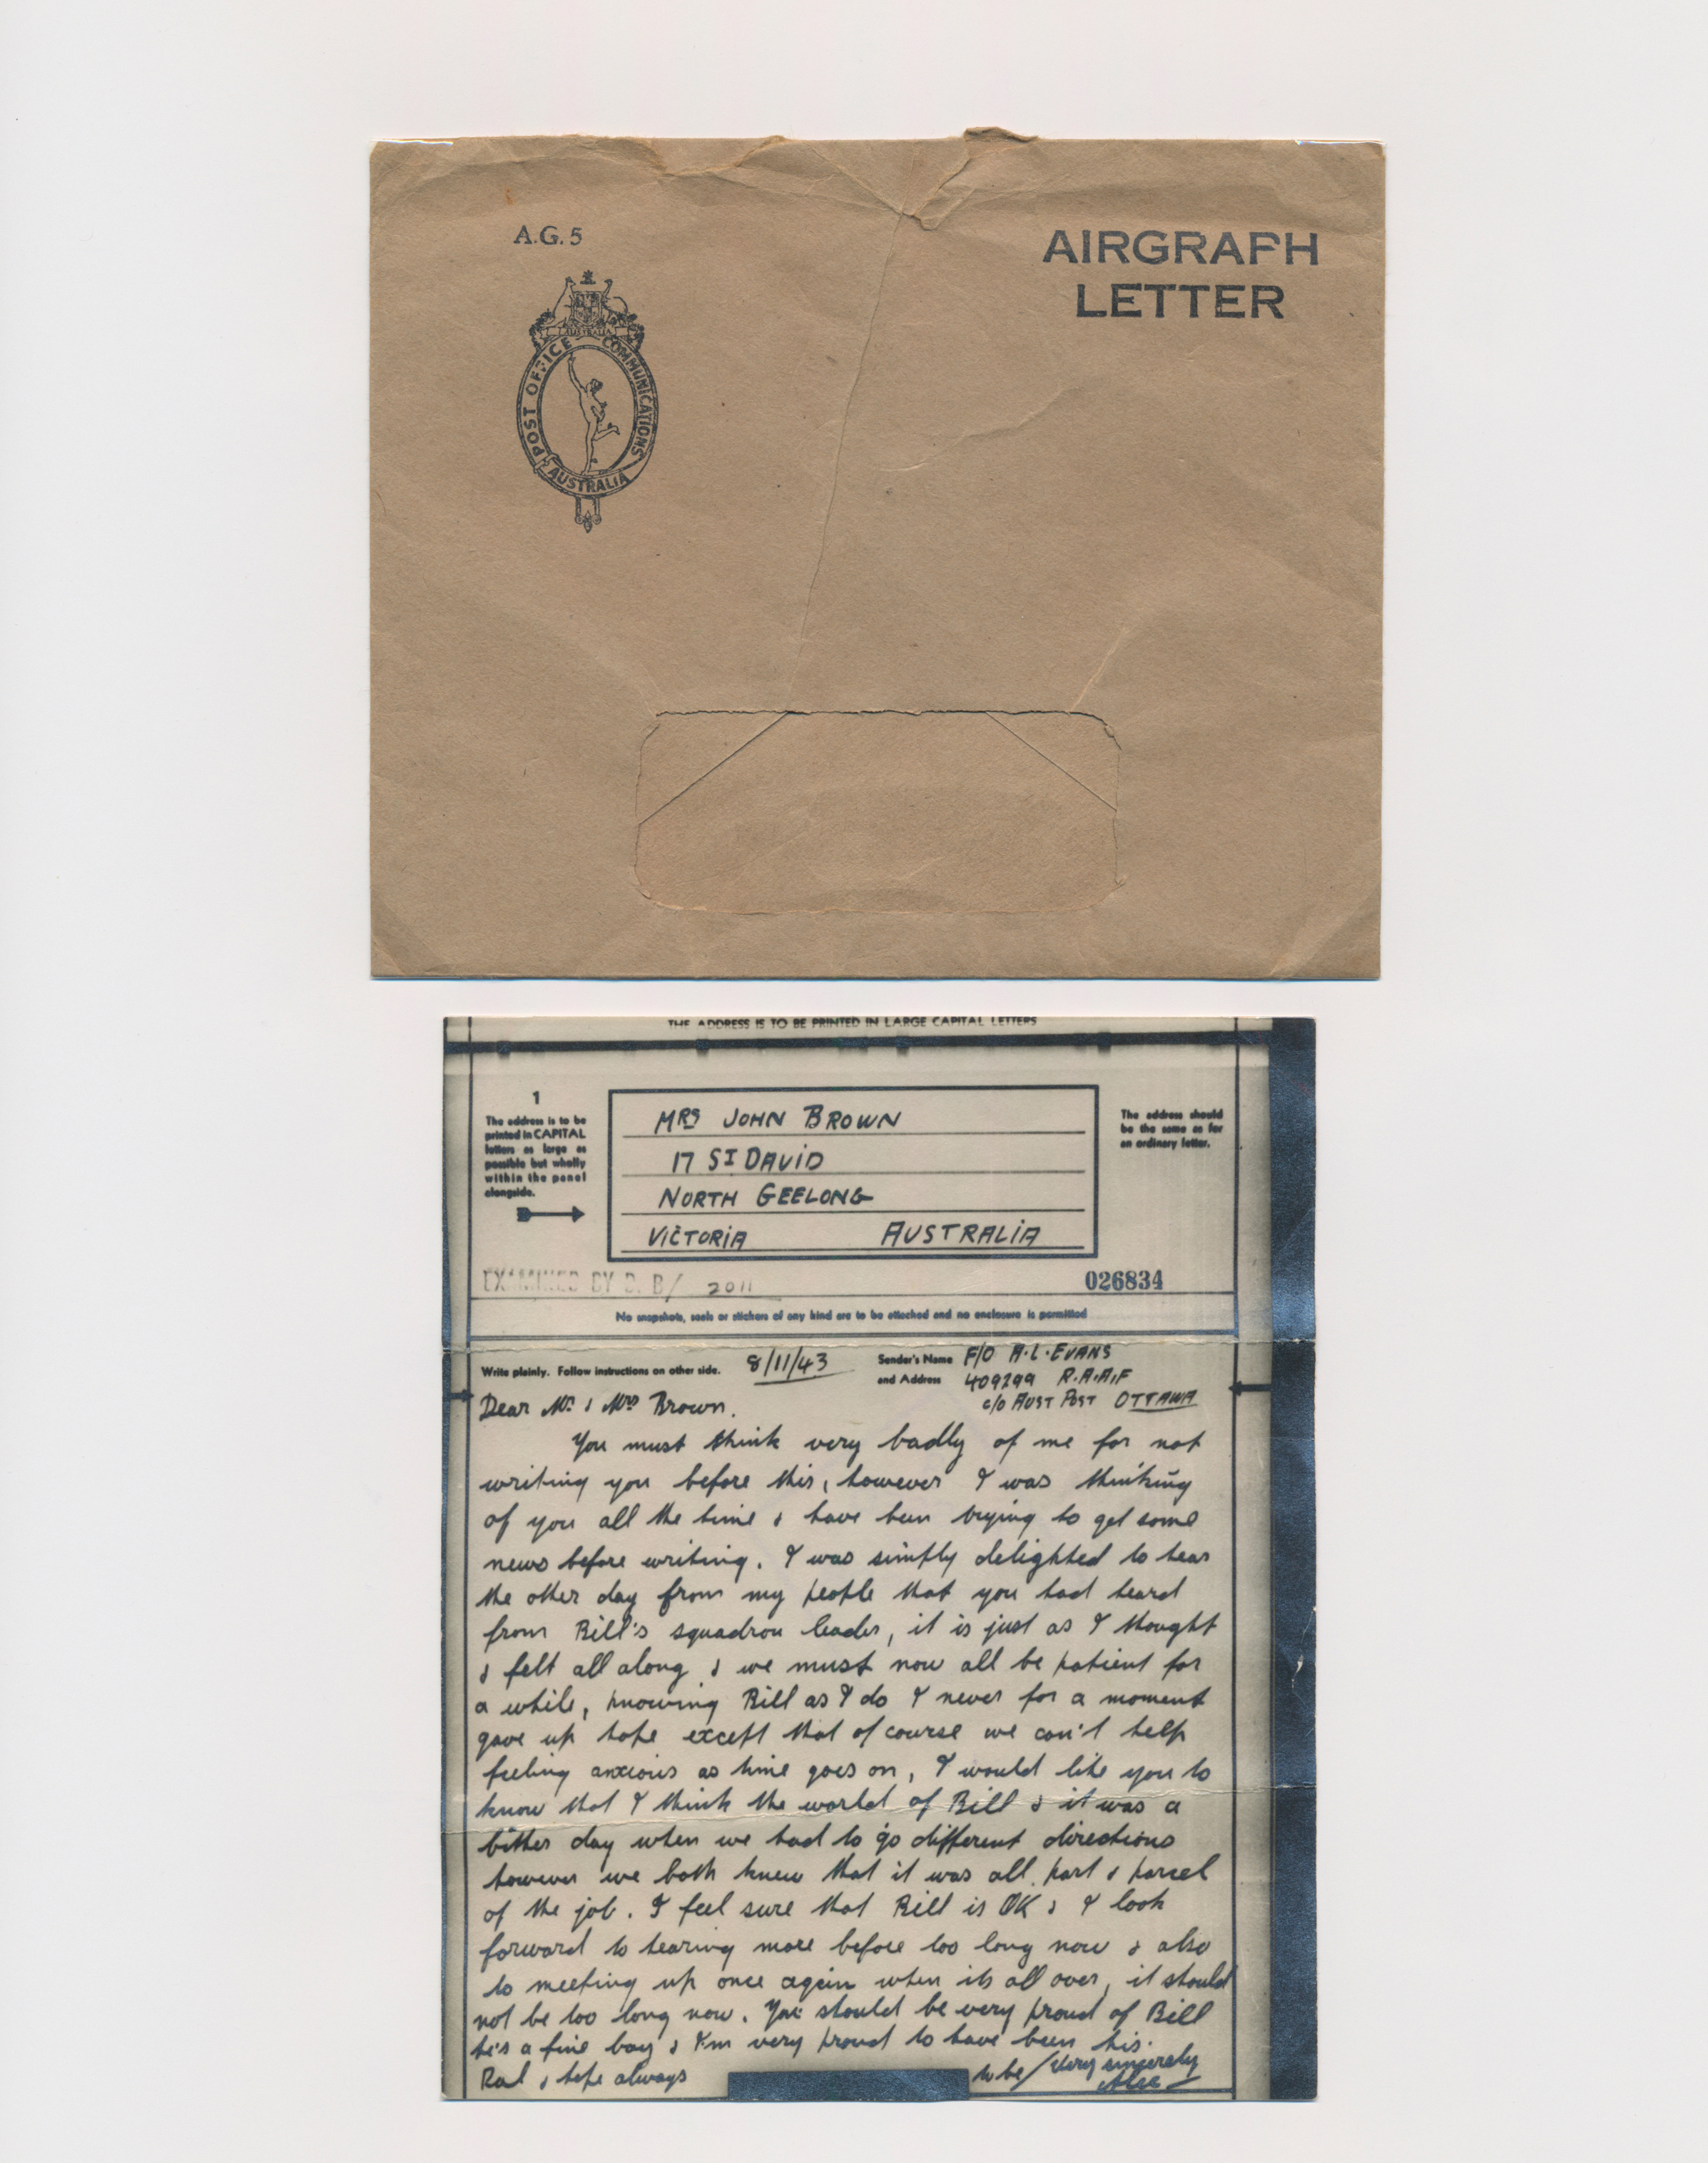 A.G. 5
AIRGRAPH
LETTER
AUSTRALIA
POST OFFICE COMMUNICATIONS
AUSTRALIA
THE ADDRESS IS TO BE PRINTED IN LARGE CAPITAL LETTERS
1
The address is to be
printed in CAPITAL
letters as large as
possible but wholly
within the panel
alongside.
MRS JOHN BROWN
17 ST DAVID
NORTH GEELONG
VICTORIA AUSTRALIA
The address should
be the same as for
an ordinary letter.
EXAMINED BY D. B/ 2011
026834
No snapshots, seals or stickers of any kind are to be attached and no enclosure is permitted
Write plainly. Follow instructions on other side. 8/11/43
Sender's Name F/O A.L. EVANS
and Address 409299 R.A.A.F
c/o AUST POST OTTAWA
Dear Mr & Mrs Brown.
You must think very badly of me for not
writing you before this, however I was thinking
of you all the time & have been trying to get some
news before writing. I was simply delighted to hear
the other day from my people that you had heard
from Bill's squadron leader, it is just as I thought
& felt all along & we must now all be patient for
a while, knowing Bill as I do I never for a moment
gave up hope except that of course we can't help
feeling anxious as time goes on, I would like you to
know that I think the world of Bill & it was a
bitter day when we had to go different directions
however we both knew that it was all part & parcel
of the job. I feel sure that Bill is OK & I look
forward to hearing more before too long now & also
to meeting up once again when its all over, it should
not be too long now. You should be very proud of Bill
he's a fine boy & I'm very proud to have been his
Pal & hope always to be / Very sincerely
Alec